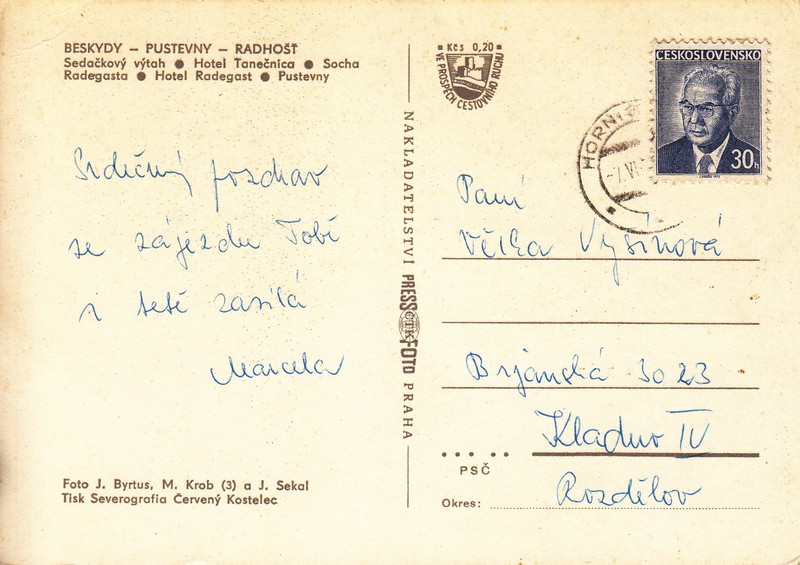 BESKYDY – PUSTEVNY – RADHOŠŤ
Sedačkový výtah ● Hotel Tanečnica ● Socha
Radegasta ● Hotel Radegast ● Pustevny
Srdečný pozdrav
ze zájezdu Tobě
i tetě zasílá
Marcela
Foto J. Byrtus, M. Krob (3) a J. Sekal
Tisk Severografia Červený Kostelec
NAKLADATELSTVÍ PRESSFOTO PRAHA
ČTK
Kčs 0,20
VE PROSPĚCH CESTOVNÍHO RUCHU
HORNÍ
-7.VI
ČESKOSLOVENSKO
30h
Paní
Věrka Vyšínová
Brjanská 3023
Kladno IV
PSČ
Rozdělov
Okres: